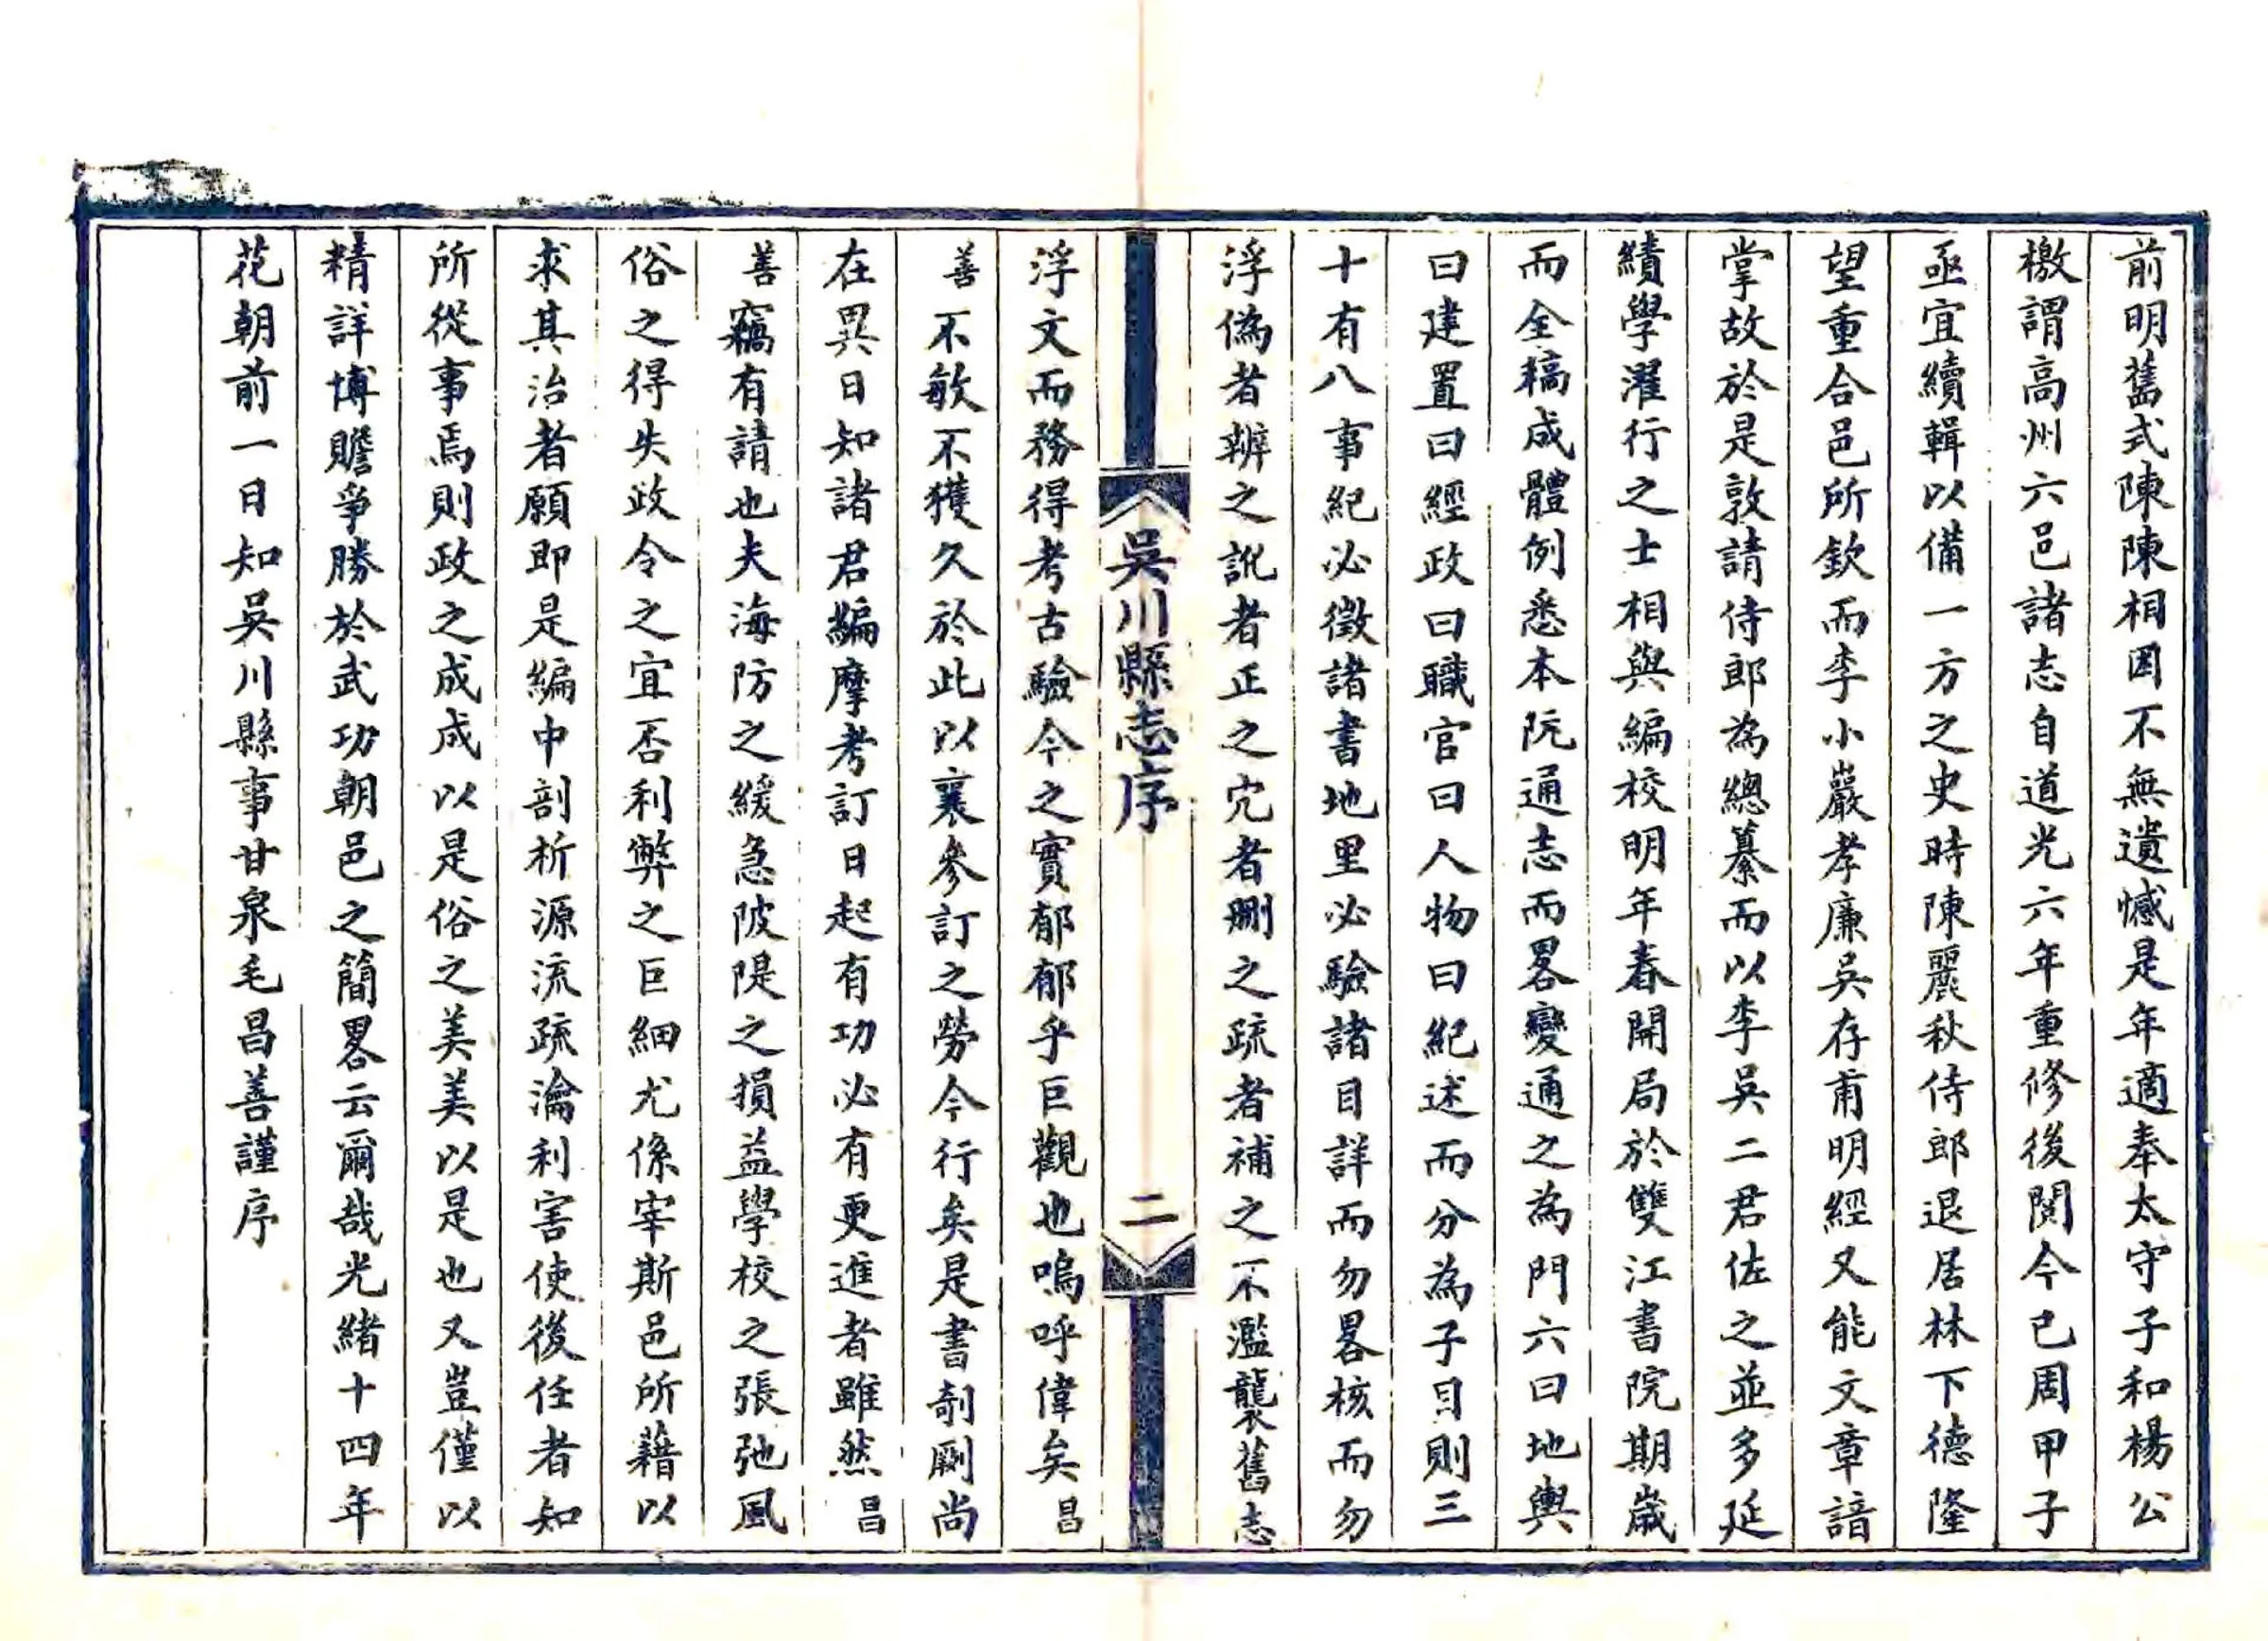 前明舊式陳陳相因不無遺憾是年適奉太守子和楊公
檄謂高州六邑諸志自道光六年重修後閱今已周甲子
亟宜續輯以備一方之史時陳麗秋侍郎退居林下德隆
望重合邑所欽而李小巖孝廉吳存甫明經又能文章諳
掌故於是敦請侍郎為總纂而以李吳二君佐之並多延
績學濯行之士相與編校明年春開局於雙江書院期歲
而全稿成體例悉本阮通志而畧變通之為門六曰地輿
曰建置曰經政曰職官曰人物曰紀述而分為子目則三
十有八事紀必徵諸書地里必驗諸目詳而勿畧核而勿
浮偽者辨之訛者正之宂者刪之疏者補之不濫襲舊志
吳川縣志序
二
浮文而務得考古驗今之實郁郁乎巨觀也嗚呼偉矣昌
善不敏不獲久於此以襄參訂之勞今行矣是書剞劂尚
在異日知諸君編摩考訂日起有功必有更進者雖然昌
善竊有請也夫海防之緩急陂隄之損益學校之張弛風
俗之得失政令之宜否利弊之巨細尤係宰斯邑所藉以
求其治者願即是編中剖析源流疏瀹利害使後任者知
所從事焉則政之成成以是俗之美美以是也又豈僅以
精詳博贍爭勝於武功朝邑之簡畧云爾哉光緒十四年
花朝前一日知吳川縣事甘泉毛昌善謹序